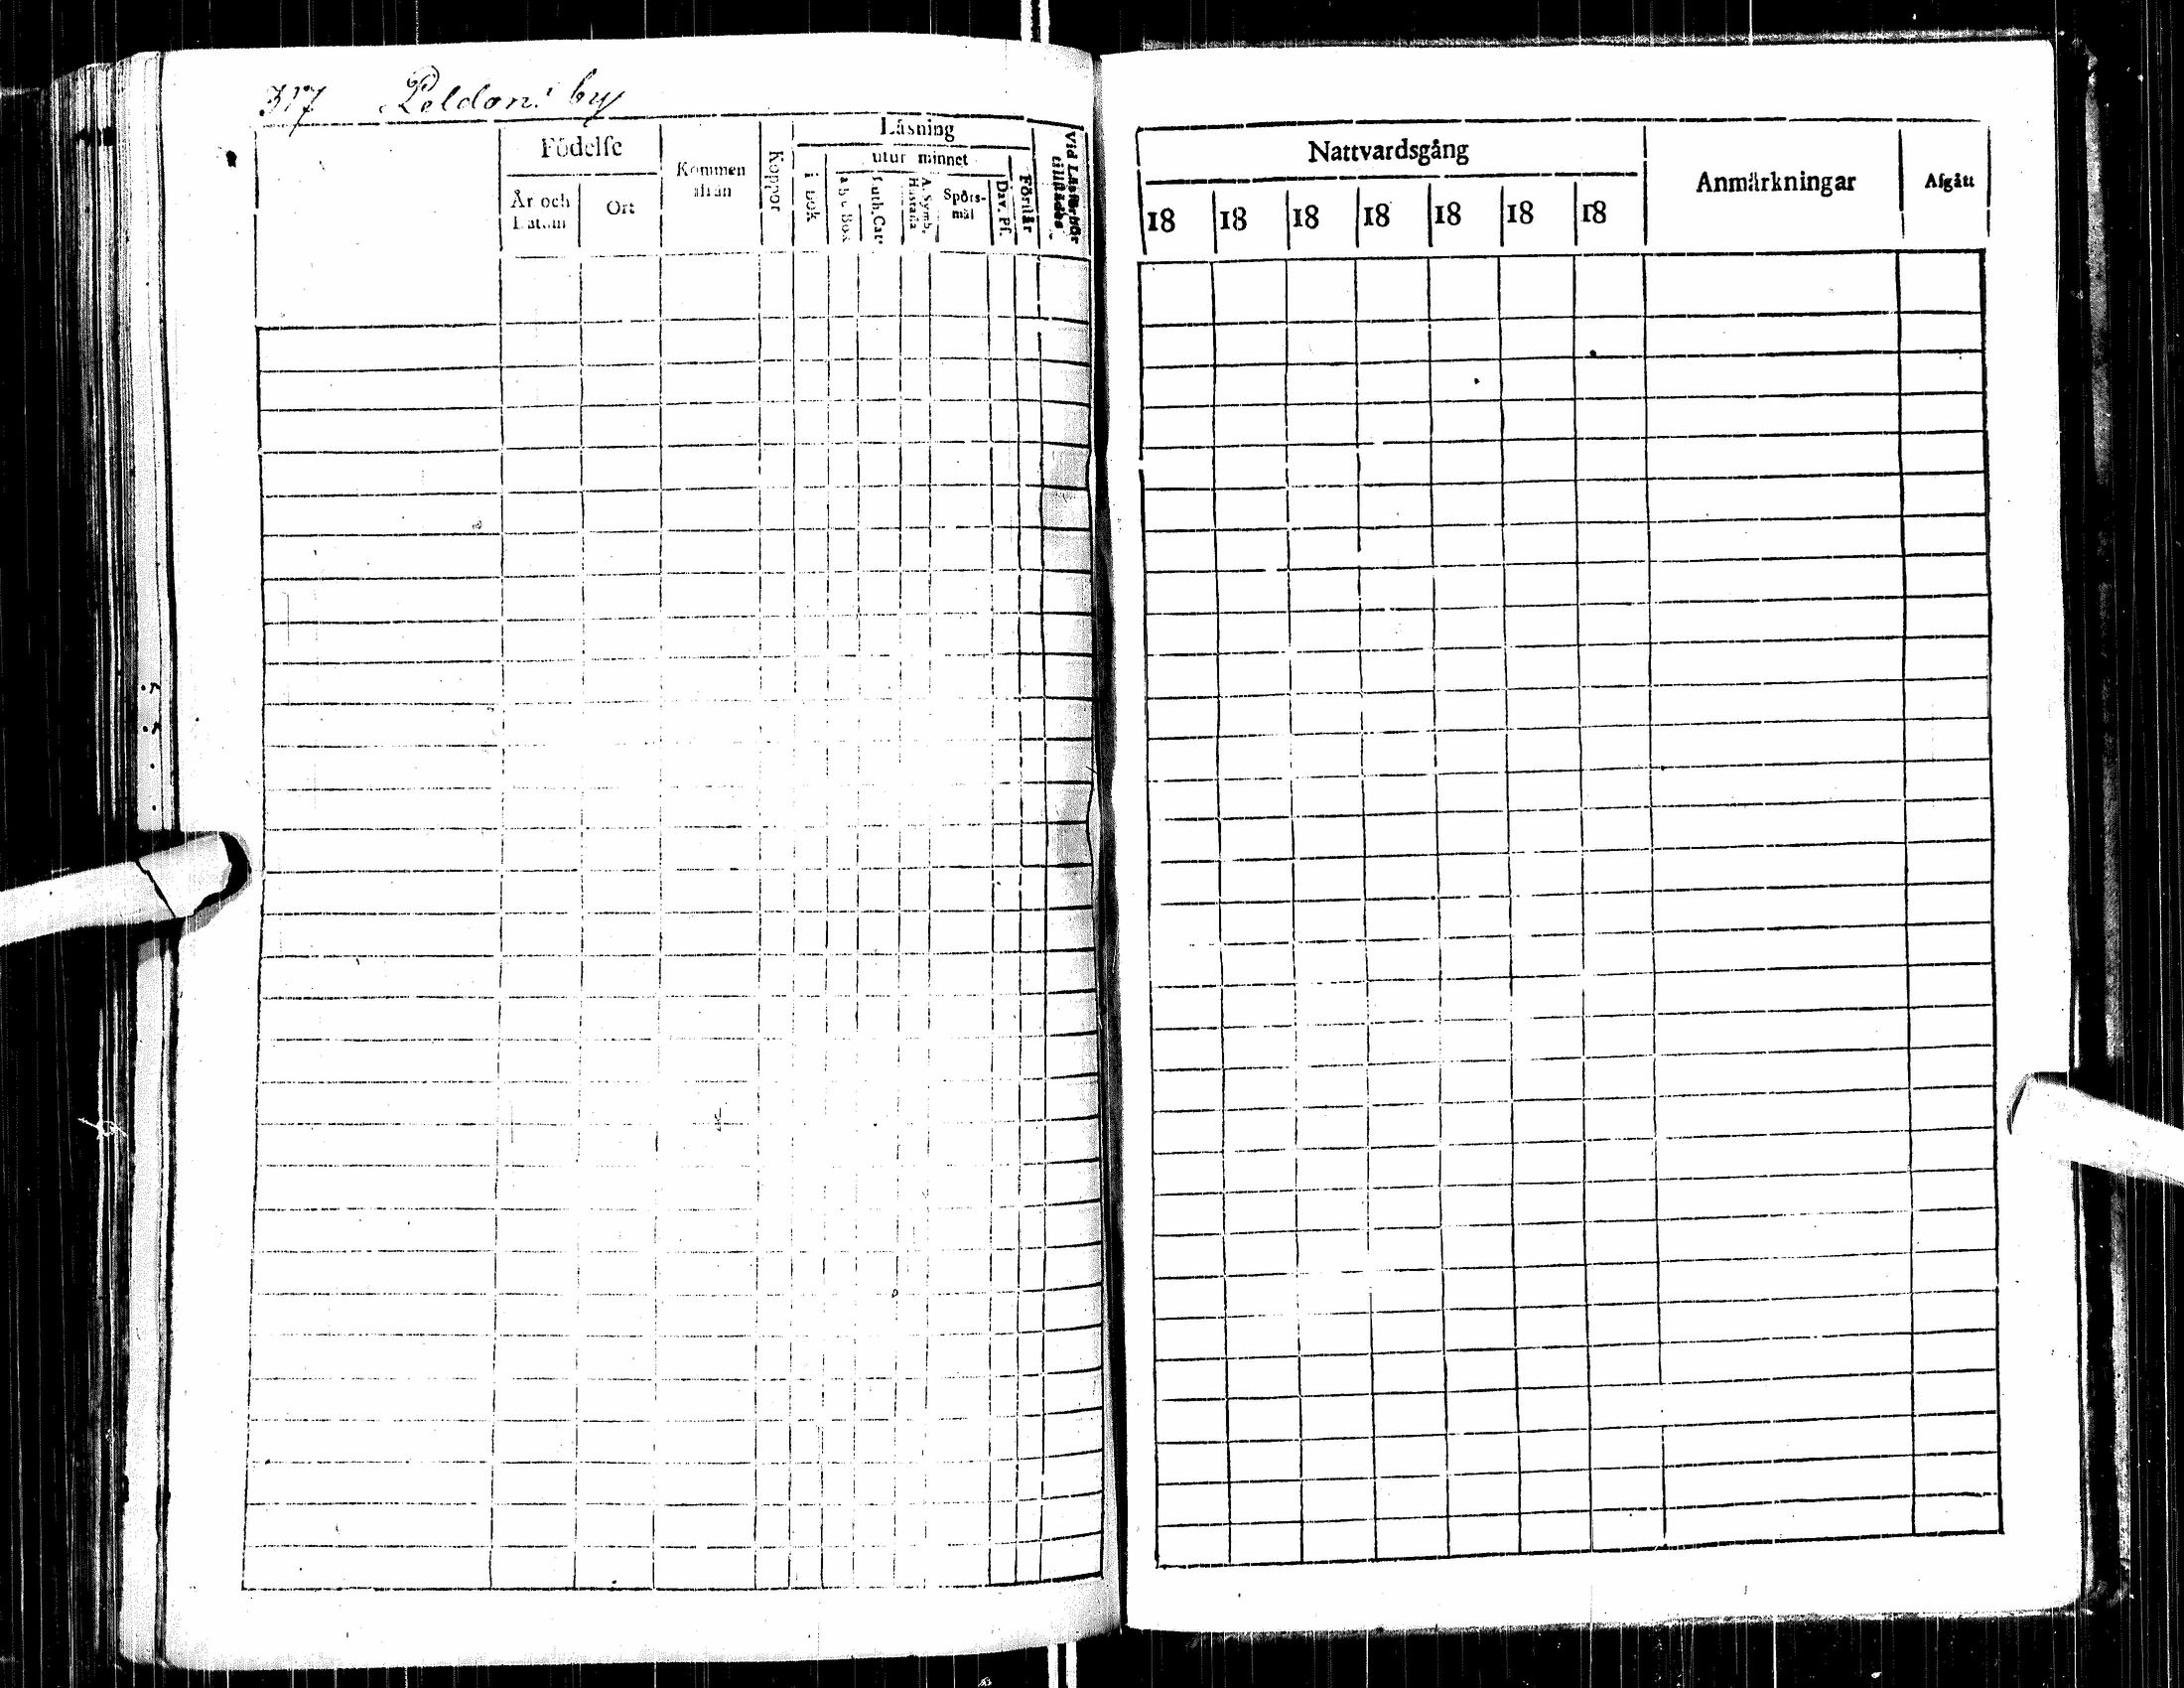 317 Peldons by
Födelse
År och Datum
Ort
Kommen ifrån
Koppor
Läsning
i bok
utur minnet
a b c Bok
Luth. Cat.
A. Symb. Hustafla
Spörsmål
Dav. Ps.
Förstår
Vid Läsförhör tillstädes
Nattvardsgång
18 18 18 18 18 18 18
Anmärkningar
Afgått